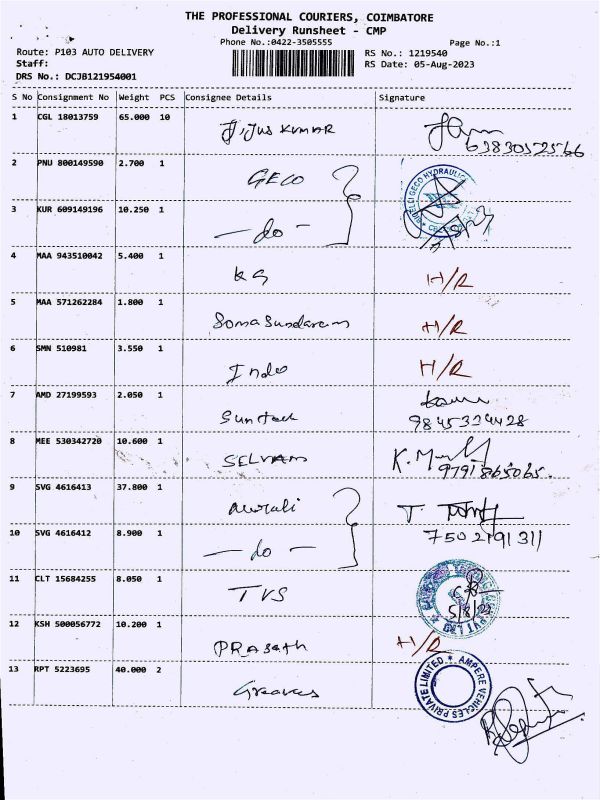 THE PROFESSIONAL COURIERS, COIMBATORE
Delivery Runsheet - CMP
Phone No.:0422-3505555 Page No.:1
Route: P103 AUTO DELIVERY RS No.: 1219540
Staff: RS Date: 05-Aug-2023
DRS No.: DCJB121954001
S No Consignment No Weight PCS Consignee Details Signature
1 CGL 18013759 65.000 10 KUMAR
6383052566
2 PNU 800149590 2.700 1 GECO
GECO HYDRAULIC
3 KUR 609149196 10.250 1 - do -
4 MAA 943510042 5.400 1 KG H/R
5 MAA 571262284 1.800 1 Somasundaram H/R
6 SMN 510981 3.550 1 Indo H/R
7 AMD 27199593 2.050 1 Suntech
9845324428
8 MEE 530342720 10.600 1 SELVAM K.
9791865065
9 SVG 4616413 37.800 1 Murali T.
10 SVG 4616412 8.900 1 - do - 7502191311
11 CLT 15684255 8.050 1 TVS 5/8/23
PVT LTD
12 KSH 500056772 10.200 1 PRASATH H/R
13 RPT 5223695 40.000 2 Greaves
AMPERE VEHICLES PRIVATE LIMITED